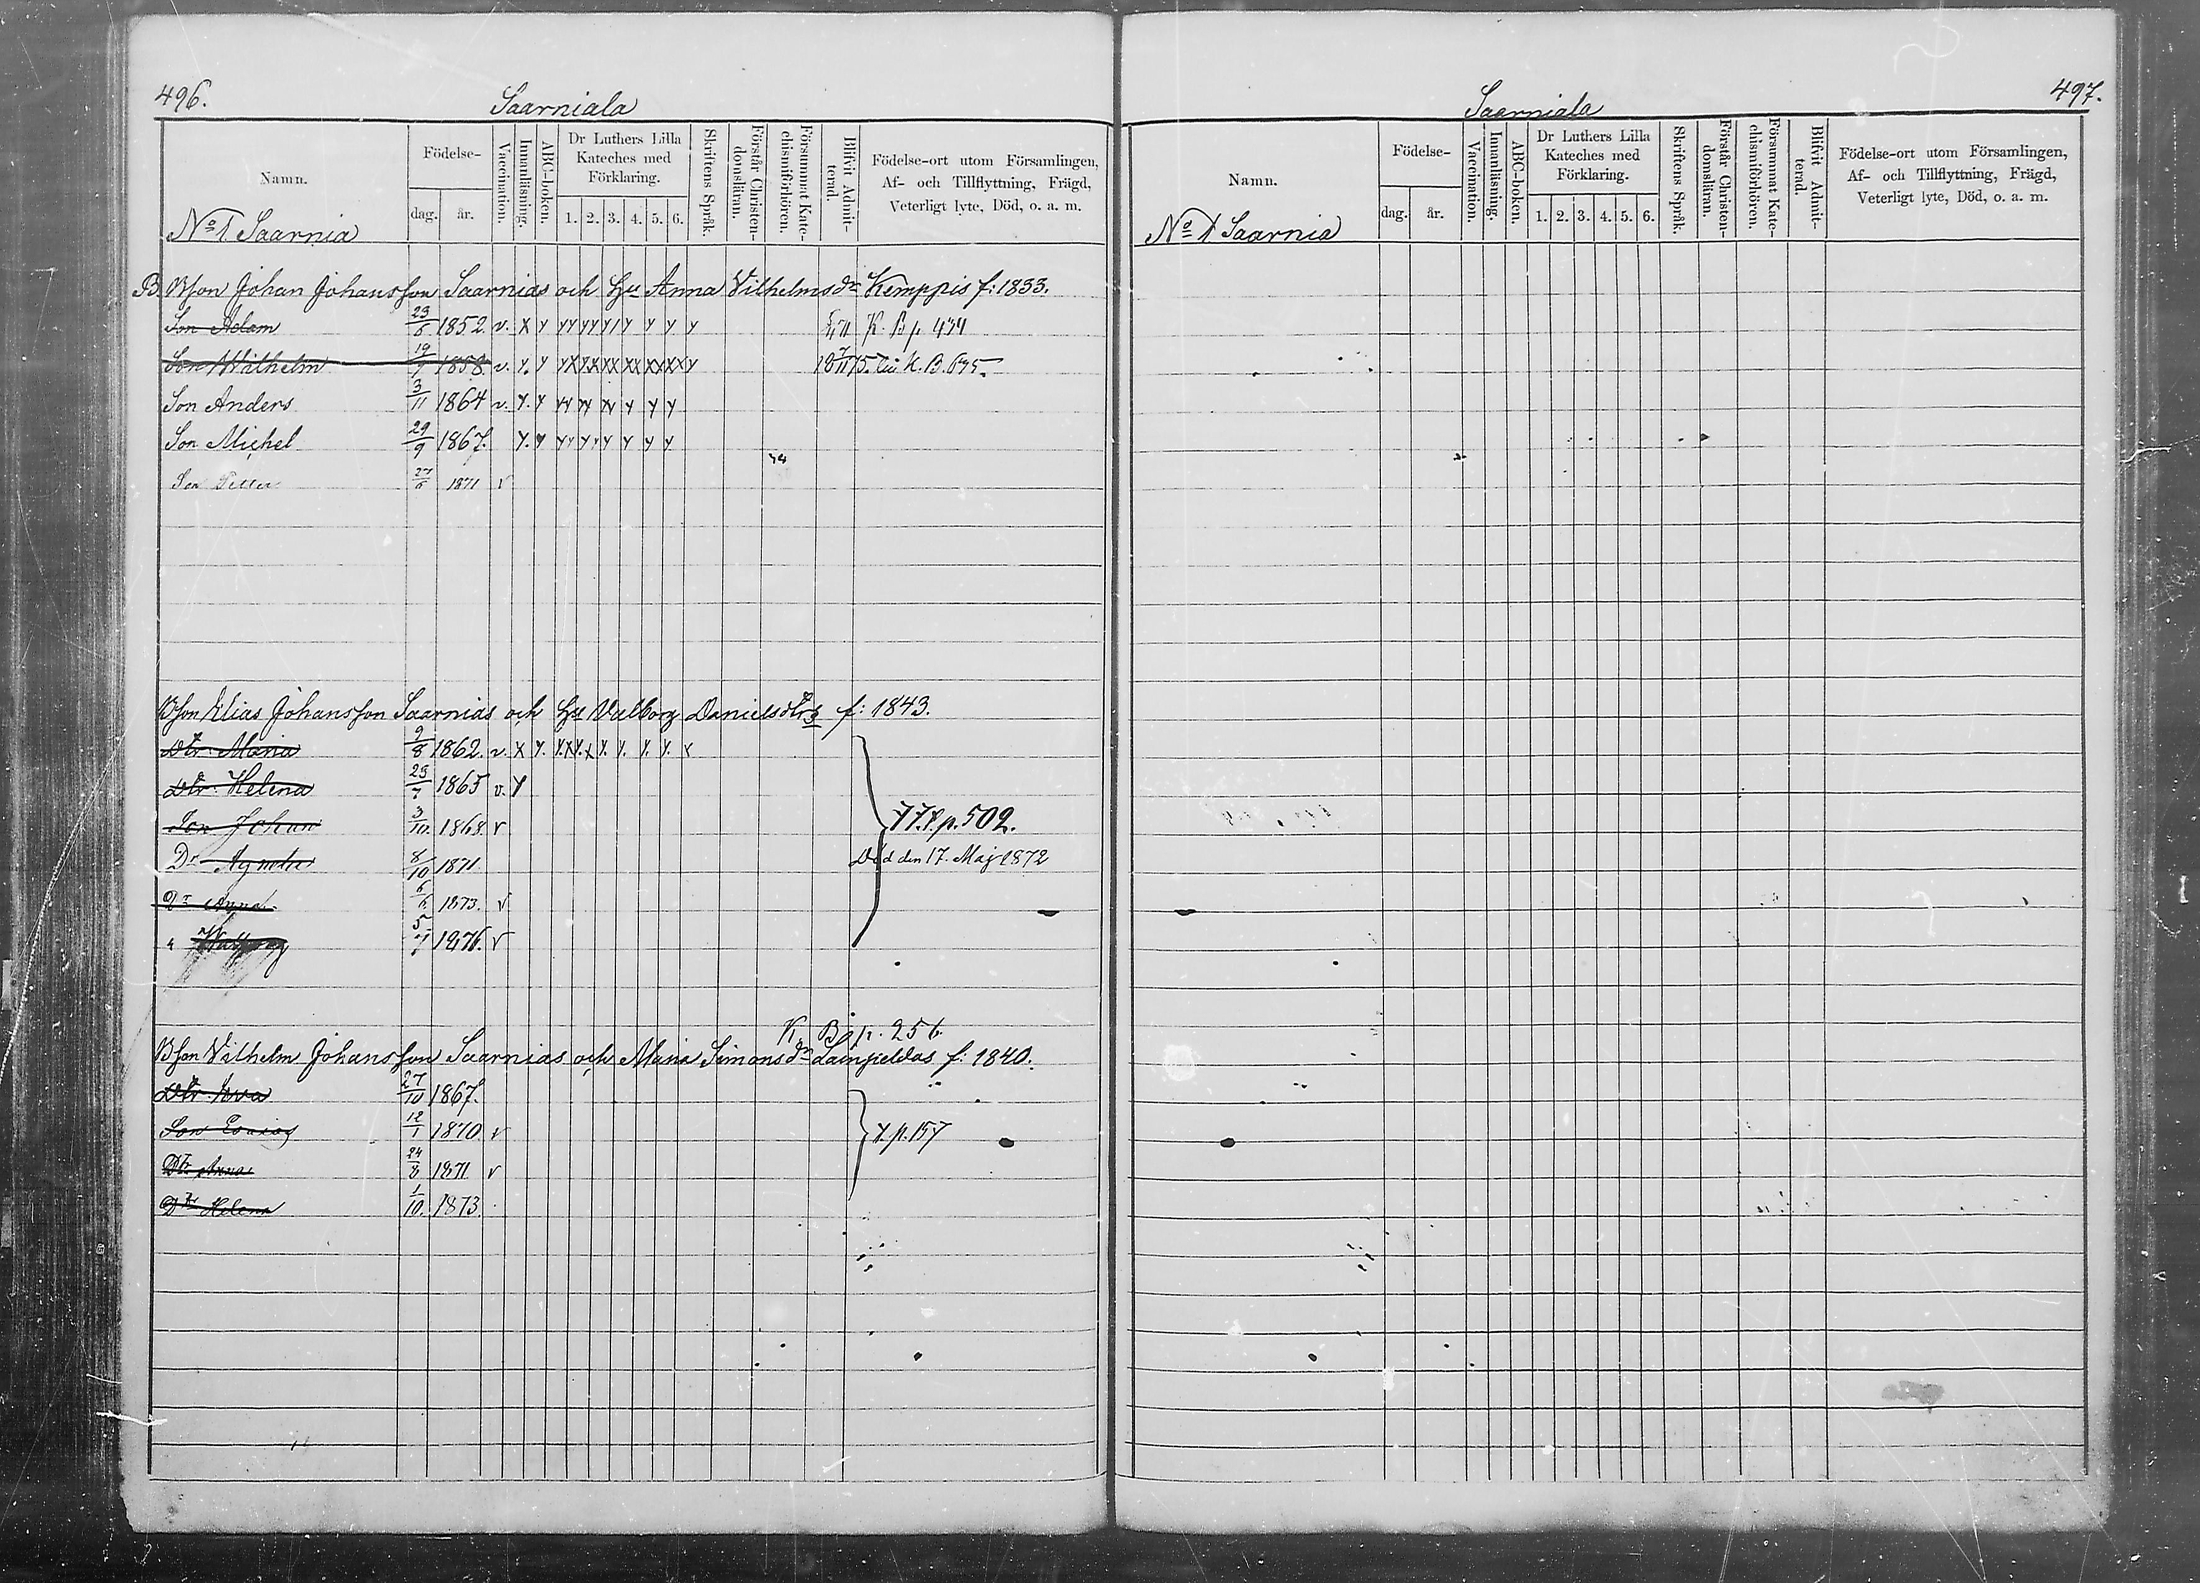 496.
Saarniala
Namn.
Födelse-
dag.
år.
Vaccination.
Innanläsning.
ABC-boken.
Dr Luthers Lilla
Kateches med
Förklaring.
1. 2. 3. 4. 5. 6.
Skriftens Språk.
Förstår Christen-
domsläran.
Försummat Kate-
chismiförhören.
Blifvit Admit-
terad.
Födelse-ort utom Församlingen,
Af- och Tillflyttning, Frägd,
Veterligt lyte, Död, o. a. m.
No 1 Saarnia
B. Bson Johan Johansson Saarnias och Hu Anna Vilhelmsdr Kemppis f: 1833.
Son Adam 23/5 1852 v. K. B p. 434
Son Wilhelm 1858. v. K. B. 695.
Son Anders 3/11 1864 v.
Son Michel 29/9 1867.
Son Petter 1871 v
Bson Elias Johansson Saarnias och Hu Valborg Danielsdtr f: 1843.
Dtr Maria 9/8 1862. v.
Dtr Helena 25/7 1865 v.
Son Johan 3/10. 1868. v p. 502.
Dr 8/10 1871. Död den 17. Maj 1872
Dr Anna 1873. v
" Walborg 5/7 1876. v
K. B p. 256.
Bson Vilhelm Johansson Saarnias och Maria Simonsdr f: 1840.
Dtr Eva 27/10 1867.
Son 12/1 1870 v p. 157
Dtr Anna 24/8 1871 v
Dtr Helena 1/10. 1873.
497.
Saarniala
Namn.
Födelse-
dag.
år.
Vaccination.
Innanläsning.
ABC-boken.
Dr Luthers Lilla
Kateches med
Förklaring.
1. 2. 3. 4. 5. 6.
Skriftens Språk.
Förstår Christen-
domsläran.
Försummat Kate-
chismförhören.
Blifvit Admit-
terad.
Födelse-ort utom Församlingen,
Af- och Tillflyttning, Frägd,
Veterligt lyte, Död, o. a. m.
No 1 Saarnia